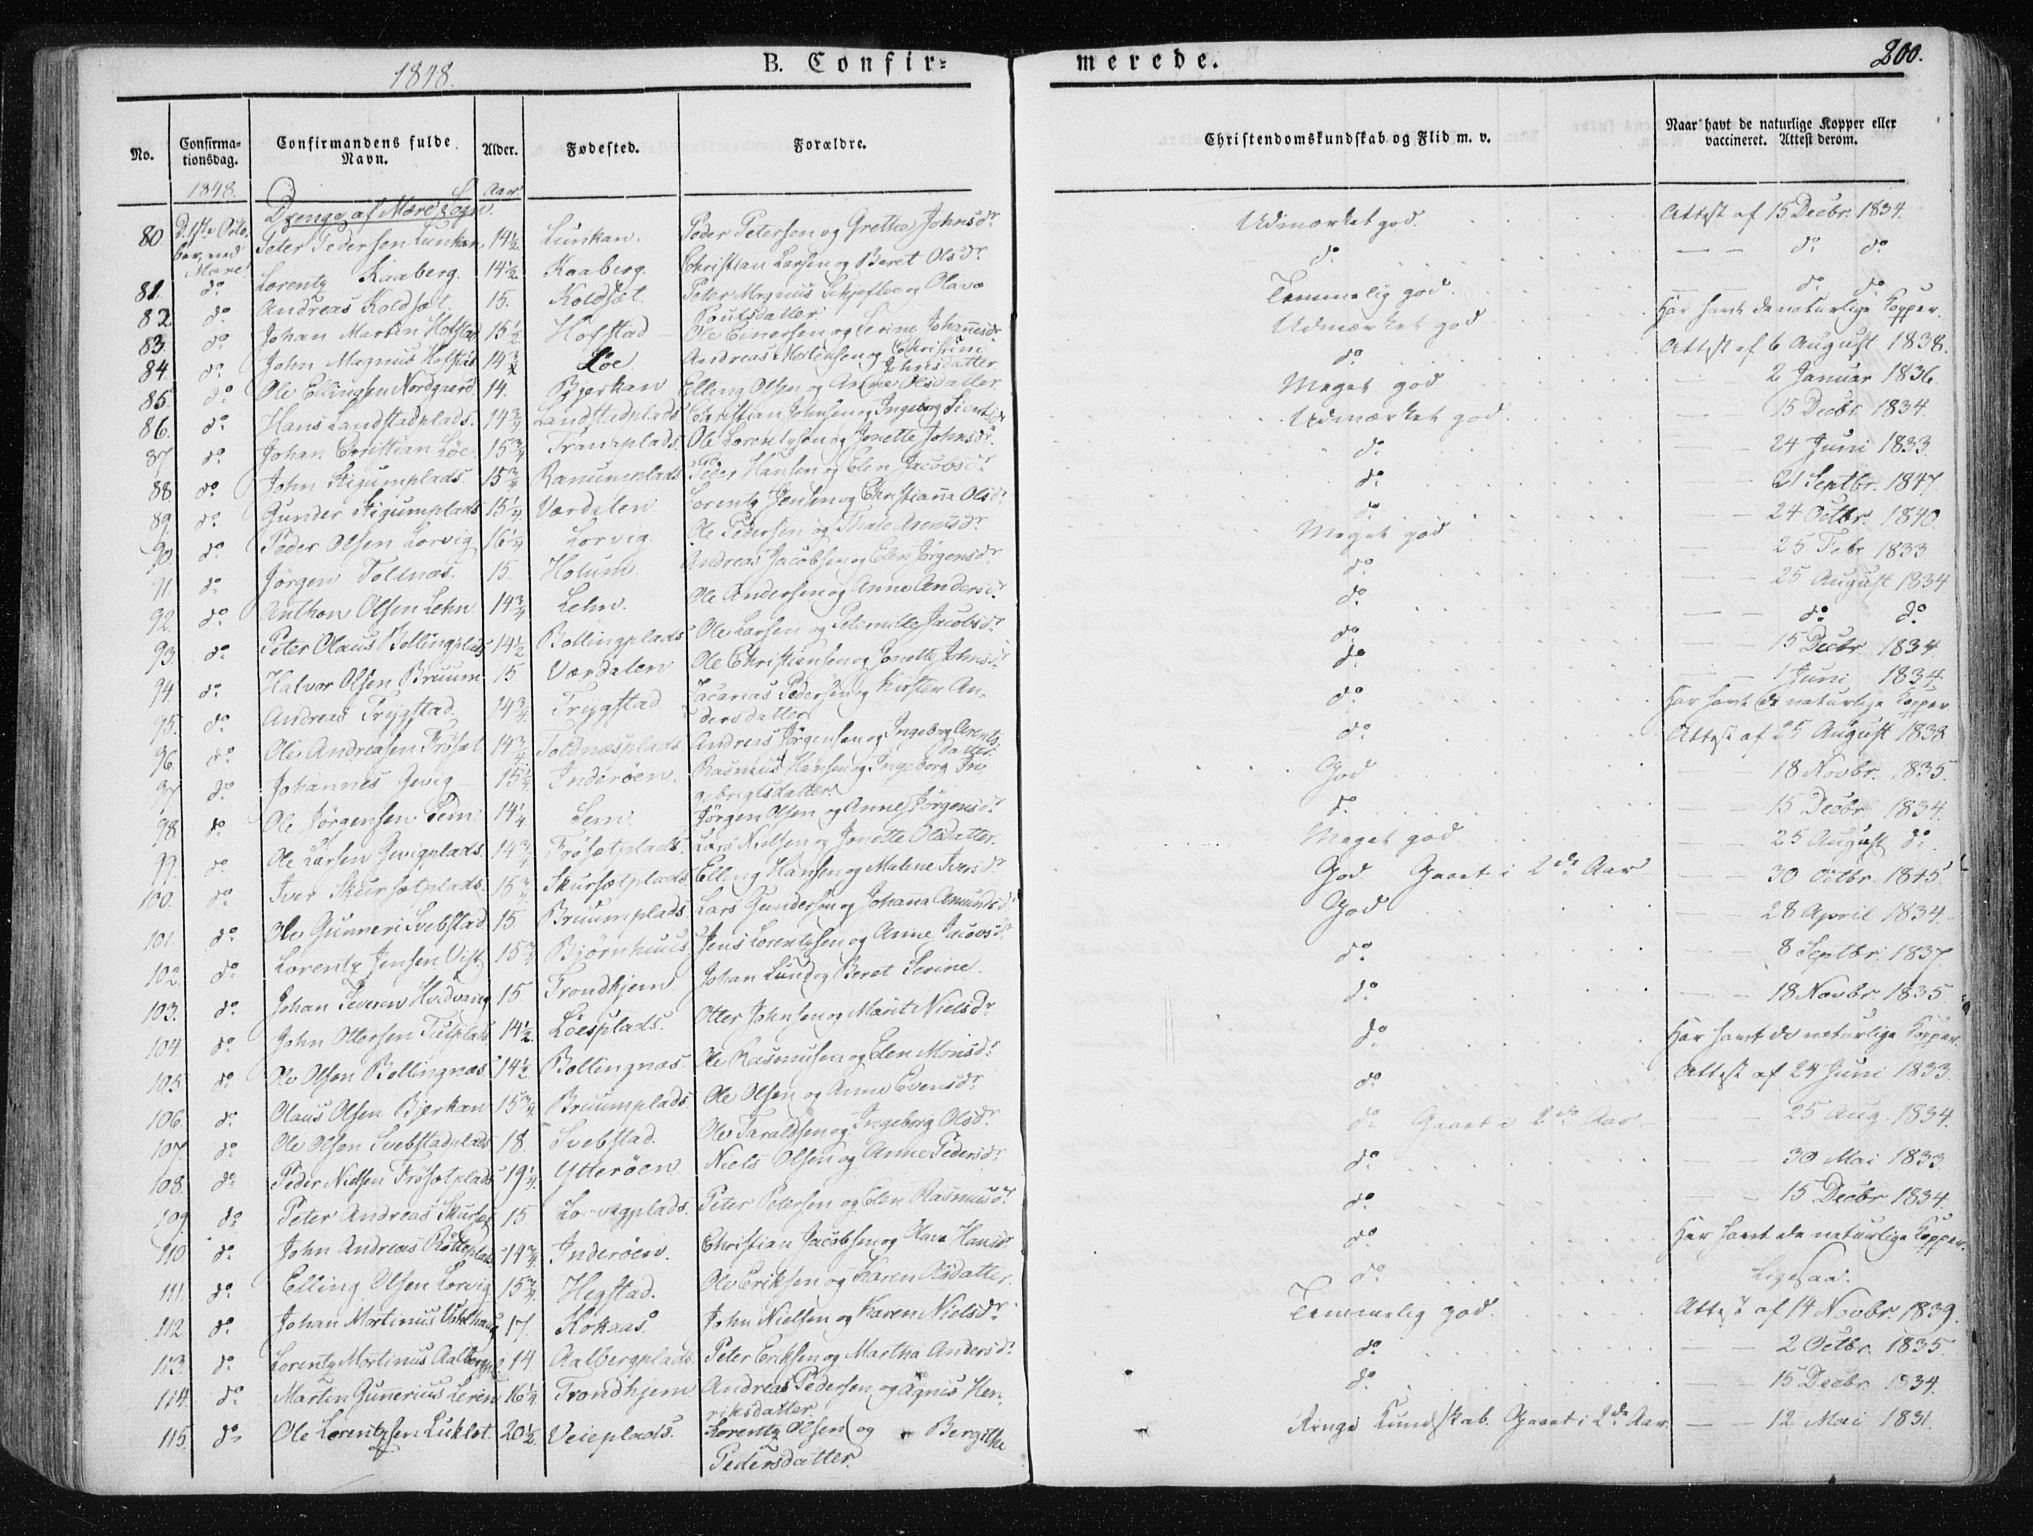 1848.
B. Confir=
merede.
200.
No. Confirma=tionsdag. Confirmandens fulde Navn. Alder. Fødested. Forældre. Christendomskundskab og Flid m. v. Naar havt de naturlige Kopper eller vaccineret. Attest derom.
1848. Drenge af Mære Sogn. Aar
80 D. 1ste Octo ber, ved Mære Peter Pedersen Lunkan 14½ Lunkan. Peder Petersen og Gretha Johnsdr Udmærket god. Attest af 15 Decbr. 1834.
81. do Lorentz Kaaberg. 14½ Kaaberg. Christian Larsen og Beret Olsdr do — — do do
82 do Andreas Koldsæt. 15. Koldsæt. Peter Magnus og Olava Poulsdatter Temmelig god. do do
83. do Johan Martin Hofstad 15½ Hofstad Ole Einersen og Serine Johannesdr Udmærket god Har havt de naturlige Kopper.
84. do John Magnus Hofstad 14¾ Løe Andreas Mortensen og Christine Johnsdatter do Attest af 6 August 1838.
85. do Ole Ellingsen Nordgaard 14. Bjerkan Elling Olsen og Anne Olsdatter Meget god — — 2 Januar 1836.
86. do Hans Landstadplads. 14¾ Landstadplads Christian Johnsen og Ingeborg Udmærket god. — — 15 Decbr. 1834.
87 do Johan Christian Løe 15¾ Tranaplads Ole Lorentzsen og Jonette Johnsdr. do — — 24 Juni 1833.
88 do John Stigumplads 15¾ Ranumplads Peder Hansen og Elen Jacobsdr do — — 21 Septbr. 1847.
89. do Gunder Stigumplads 15¼ Værdalen Lorentz Jensen og Christianna Olsdr do — — 24 Octbr. 1840.
90. do Peder Olsen Lorvig 16¼ Lorvig. Ole Pedersen og Thale Arentsdr Meget god — — 25 Febr. 1833
91. do Jørgen Toldnæs. 15 Hølum. Andreas Jacobsen og Elen Jørgensdr do — — 25 August 1834
92. do Anthon Olsen Lehn 14¾ Lehn. Ole Andersen og Anne Andersdr do — — do do
93. do Peter Olaus Bollingplads 14½ Bollingplads Ole Larsen og Peternille Jacobsdr do — — 15 Decbr. 1834
94. do Halvor Olsen Bruum 15 Værdalen Ole Christiansen og Jonette Johnsdr do — — 1 Juni 1834
95. do Andreas Trygstad. 14¾ Trygstad Zacarias Pedersen og Kirsten Andersdatter do Har havt de naturlige Kopper
96. do Ole Andreasen Frøset 14¾ Toldnæsplads Andreas Jørgensen og Ingeborg Arents datter do Attest af 25 August 1833
97 do Johannes Gevig 15¼ Inderøen. Rasmus Hansen og Ingeborg In gebrigtsdatter. God — — 18 Novbr. 1835.
98 do Ole Jørgensen Lem 14¼ Lem. Jørgen Olsen og Anne Jørgensdr do — — 15 Decbr. 1834.
99. do Ole Larsen Gevigplads. 14¾ Frøsetplads. Lars Nielsen og Jonette Olsdatter. Meget god — — 25 August do
100. do Iver Skursætplads. 15¾ Skursætplads Elling Hansen og Malene Iversdr God Gaaet i 2de Aar — — 30 Octbr. 1845.
101. do Ole Gunneri Svebstad 15. Bruumplads Lars Gundersen og Johana Amundsdr God — — 28 April 1834.
102. do Lorentz Jensen Vist. 15¾ Bjørnhuus Jens Lorentzsen og Anne Jacobsdr. do — — 8 Septbr. 1837.
103. do Johan Severin 15 Trondhjem Johan Lund og Beret Serine. do — — 18 Novbr. 1835.
104. do John Ottersen 14½ Løesplads. Otter Johnsen og Marit Nielsdr do Har havt de naturlige Kopper.
105. do Ole Olsen Bollingnæs. 14½ Bollingnæs. Ole Rasmusen og Elen Monsdr do Attest af 24 Juni 1833.
106. do Olaus Olsen Bjerkan 15¾ Bruumplads. Ole Olsen og Anne Evensdr. do Gaaet i 2de Aar — — 25 Aug. 1834.
107. do Ole Olsen Svebstadplads 18 Svebstad. Ole Taraldsen og Ingeborg Olsdr. do — — 30 Mai 1833.
108. do Peder Nielsen Frøsetplads 19¼. Ytterøen. Niels Olsen og Anne Pedersdr do — — 15 Decbr 1834.
109. do Peter Andreas Skurset 15. Lorvigplads. Peter Petersen og Elen Rasmusdr do Har havt de naturlige Kopper.
110 do John Andreas 14¾ Inderøen. Christian Jacobsen og Olava Hansdr do Ligesaa.
111. do Elling Olsen Lorvig 15¾. Hegstad. Ole Eriksen og Karen Olsdatter. Temmelig god. Attest af 14 Novbr. 1839.
112 do Johan Martinus 17. Kokaas. John Nielsen og Karen Nielsdr. do — — 2 Octbr. 1835.
113. do Lorentz Martinus Aalbergpl. 14 Aalbergplads. Peter Eriksen og Martha Andersdr. do — — 15 Decbr. 1834.
114. do Martin Gunerius Leren 16½ Trondhjem Andreas Pedersen og Agnis Hen riksdatter Ringe Kundskab. Gaaet i 2de Aar. — — 12 Mai 1831.
115. do Ole Lorentzsen 20½ Veieplads. Lorentz Olsen og Bergithe Pedersdatter.